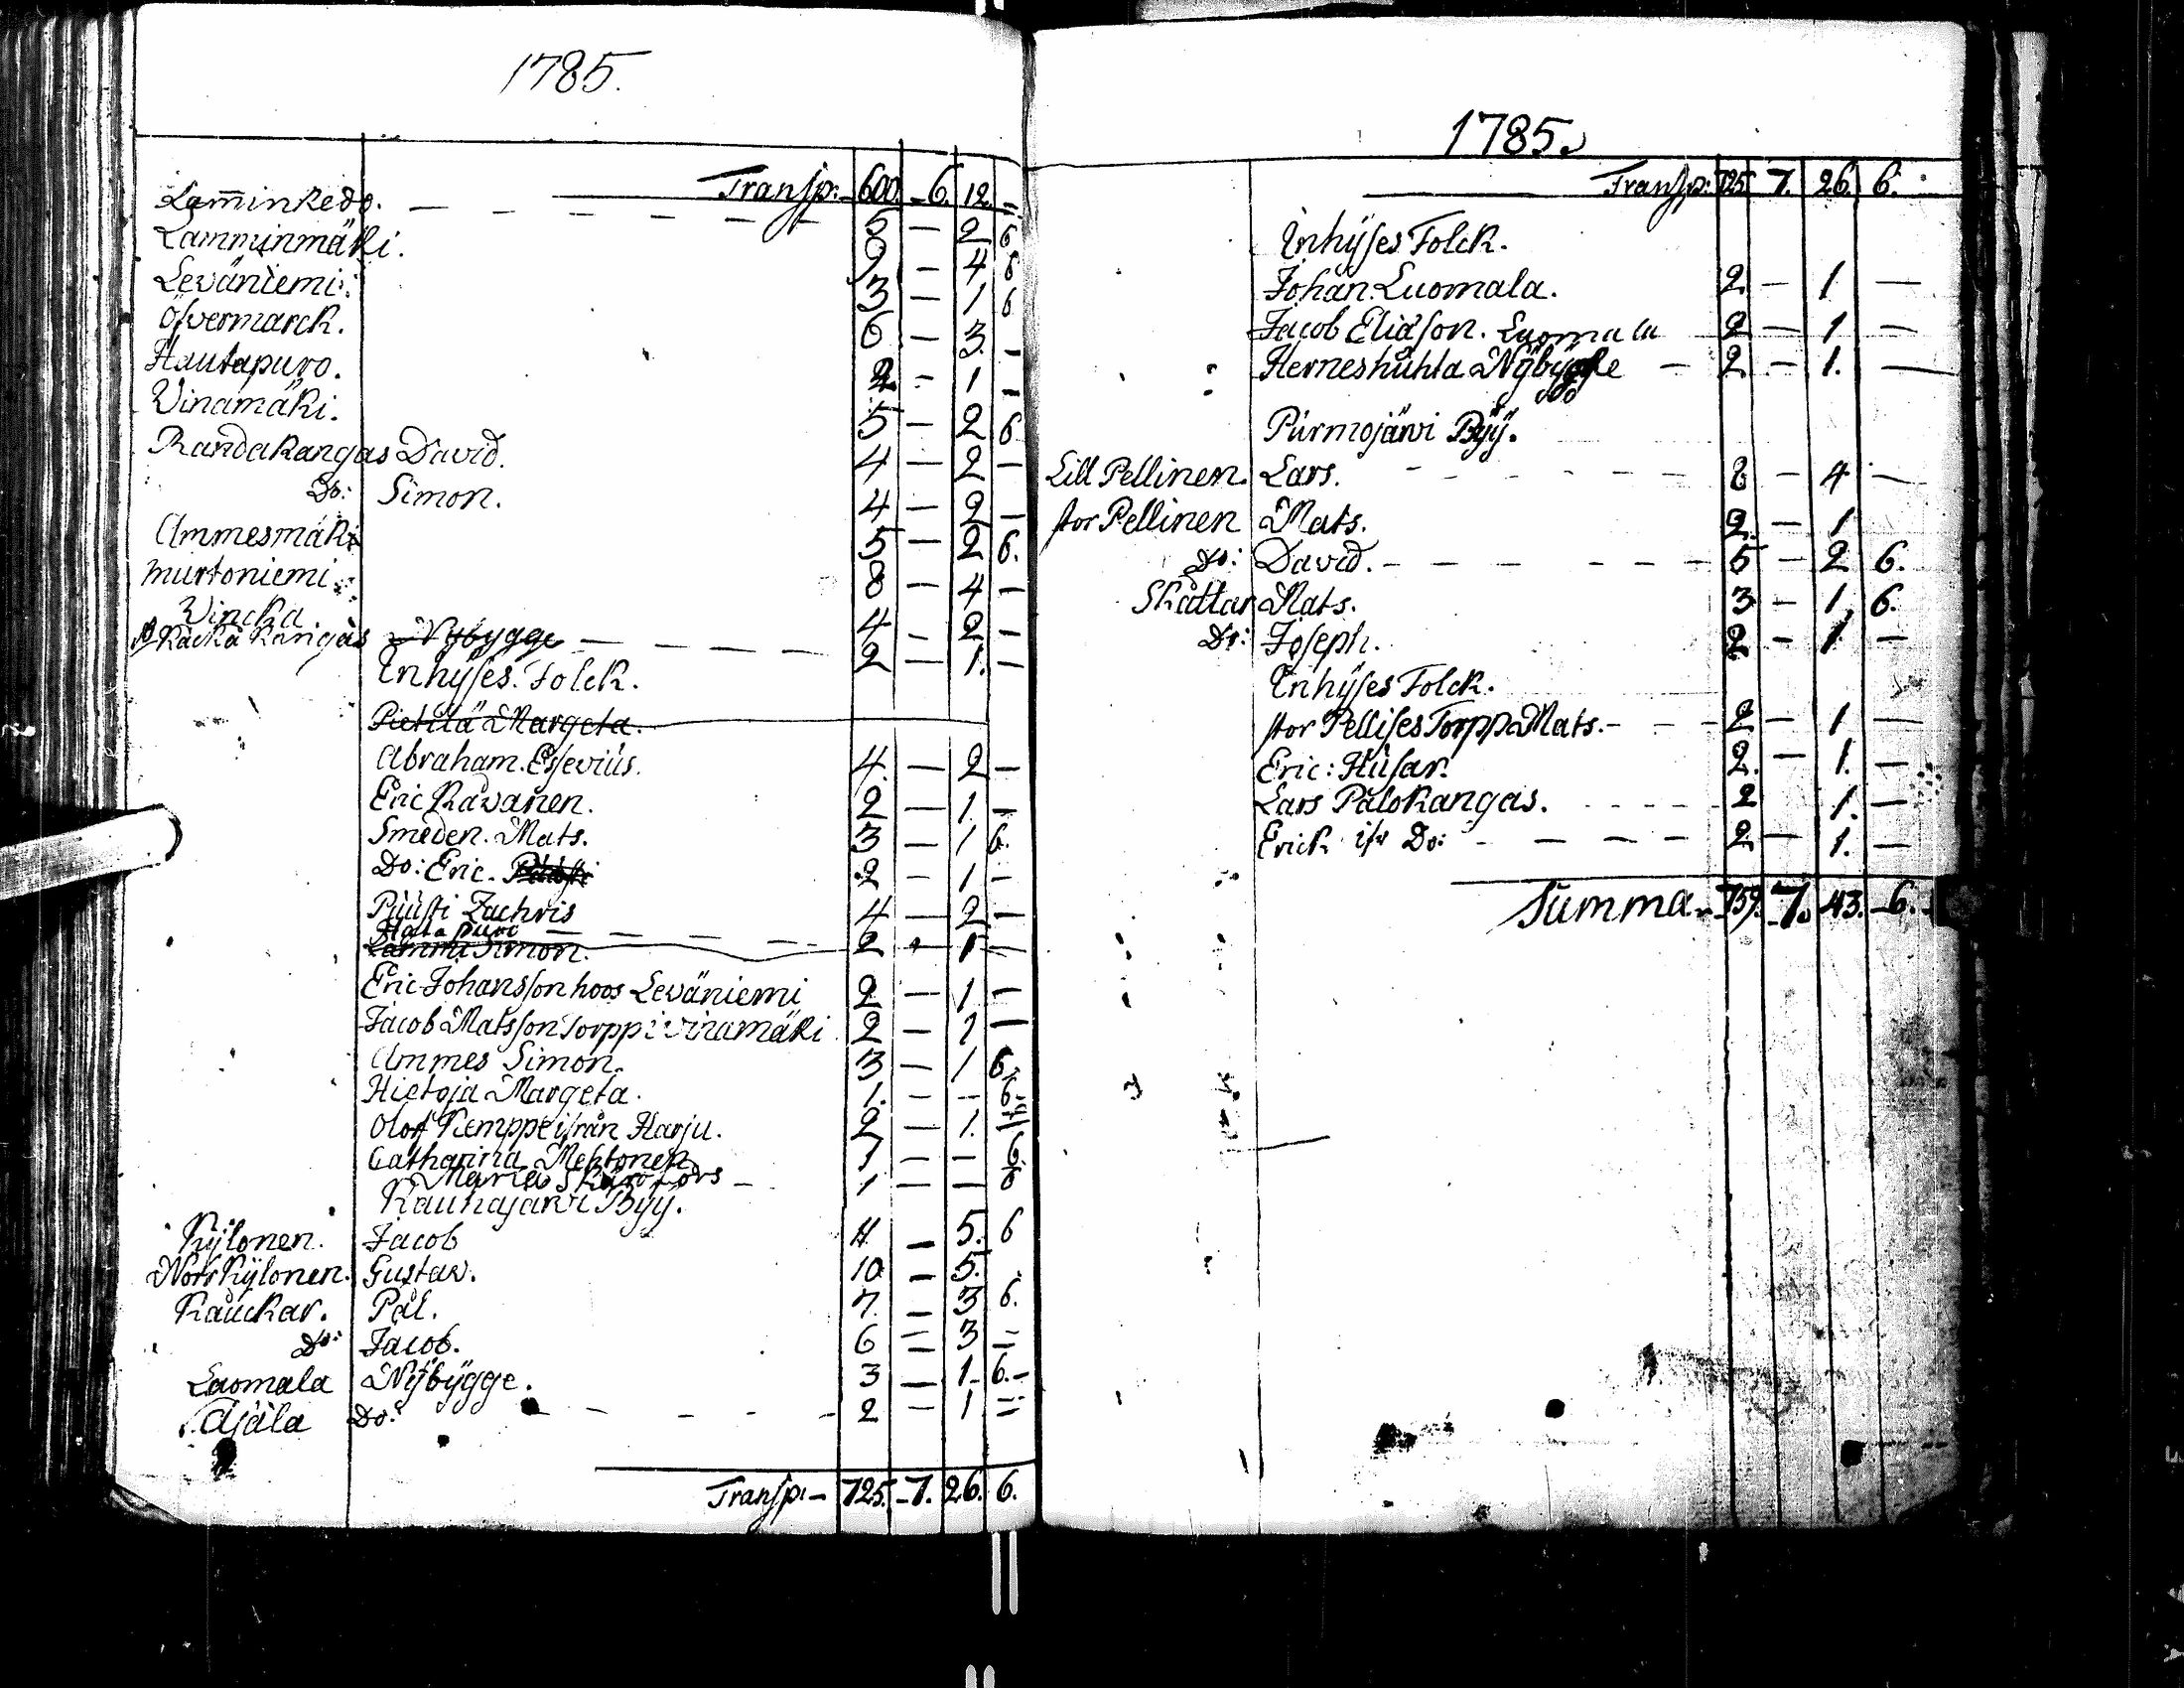 1785.
Transp: 600. 6. 12. —
Lam̄inkedo. — 5 — 2 6
Lamminmäki. 9 — 4 6
Leväniemi. 3 — 1 6
Öfvermarck. 6 — 3. —
Hautapuro. 2. — 1 —
Winamäki. 5 — 2 6
Randakangas David. 4 — 2 —
Do: Simon. 4 — 2 —
Ammesmäki 5 — 2 6.
Murtoniemi. 8 — 4 —
Wincka 4 — 2 —
Kåckå Kangas Nybygge — 2 — 1. —
Inhyses Folck.
Pietilä Margeta.
Abraham. Essevius. 4. — 2 —
Eric Ravanen. 2 — 1. —
Smeden. Mats. 3 — 1 6.
Do: Eric. 2 — 1 —
Puusti Zachris 4 — 2 —
Hata puro
Lammi Simon. 2 — 1 —
Eric Johansson hoos Leväniemi 2 — 1 —
Jacob Matsson Torpp i Vinamäki 2 — 1 —
Ammes Simon. 3 — 1 6.
Hietoja Margeta. 1. — — 6
Olof Kemppe ifrån Harju. 2 — 1.
Catharina Mehtonen 1 — — 6.
Maria — 1 — — 6
Kauhajärvi Bÿÿ.
Kÿlönen. Jacob 11 — 5. 6
Norr Kÿlönen. Gustav. 10 — 5.
Kauckar. Pål. 7. — 3 6.
Do: Jacob. 6 — 3 —
Luomala Nÿbÿgge. 3 — 1. 6. —
Ajala Do: — 2 — 1 —
Transp: — 725. — 7. 26. 6.
1785.
Transp: 725 7. 26. 6.
Inhÿses Folck.
Johan. Luomala. 2 — 1 —
Jacob Eliason. Luomala 2 — 1 —
Herneshuhta Nÿbÿgge — 2 — 1. —
Purmojärvi Bÿÿ.
Lill Pellinen. Lars. 8 — 4 —
Stor Pellinen Mats. 2. — 1
Do: David. — 5 — 2 6.
Skattar Mats. 3 — 1 6.
Do: Joseph. 2 — 1 —
Inhÿses Folck.
Stor Pellises Torpp Mats. — 2 — 1 —
Eric: Husar. 2. — 1. —
Lars Palokangas. 2 1. —
Erick Do: — 2 — 1. —
Summa. 759. 7. 43. 6.